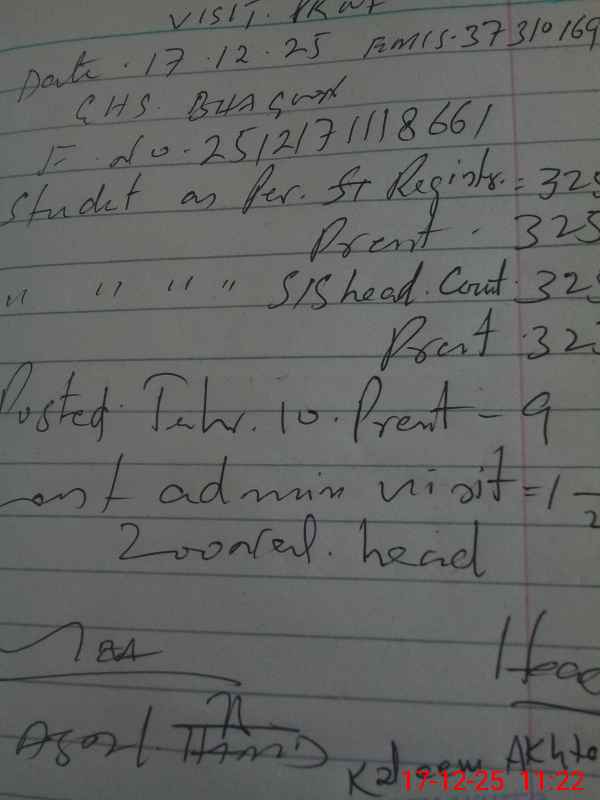 VISIT. PRof
Date. 17.12.25 EMIS-37310169
GHS. BHAGwal
F. No. 25121711118661
Studet as Per. St Registr. = 325
Prent. 325
" " " " S/S head. Cout. 325
Prent. 323
Posted. Tehr. 10. Prent - 9
Last admin visit = 1
2 head
Head
Asad. HAMID
Kaleem Akhta
17-12-25 11:22